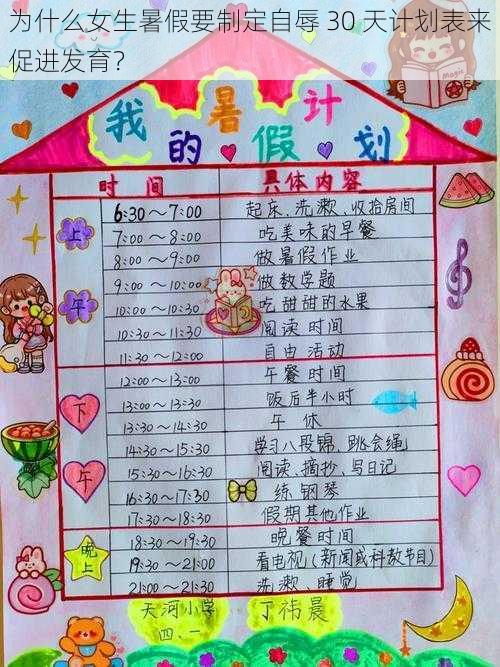 为什么女生暑假要制定自辱 30 天计划表来
促进发育？
MAGIC
我的暑假计划
时间 具体内容
上午
6:30～7:00 起床、洗漱、收拾房间
7:00～8:00 吃美味的早餐
8:00～9:00 做暑假作业
9:00～10:00 做数学题
10:00～10:30 吃甜甜的水果
10:30～11:30 阅读时间
11:30～12:00 自由活动
下午
12:00～13:00 午餐时间
13:00～13:30 饭后半小时
13:30～14:30 午休
14:30～15:30 学习八段锦、跳会绳
15:30～16:30 阅读、摘抄、写日记
16:30～17:30 练钢琴
17:30～18:30 假期其他作业
晚上
18:30～19:30 晚餐时间
19:30～21:00 看电视（新闻或科教节目）
21:00～21:30 洗漱 睡觉
天河小学 丁祎晨
四.一